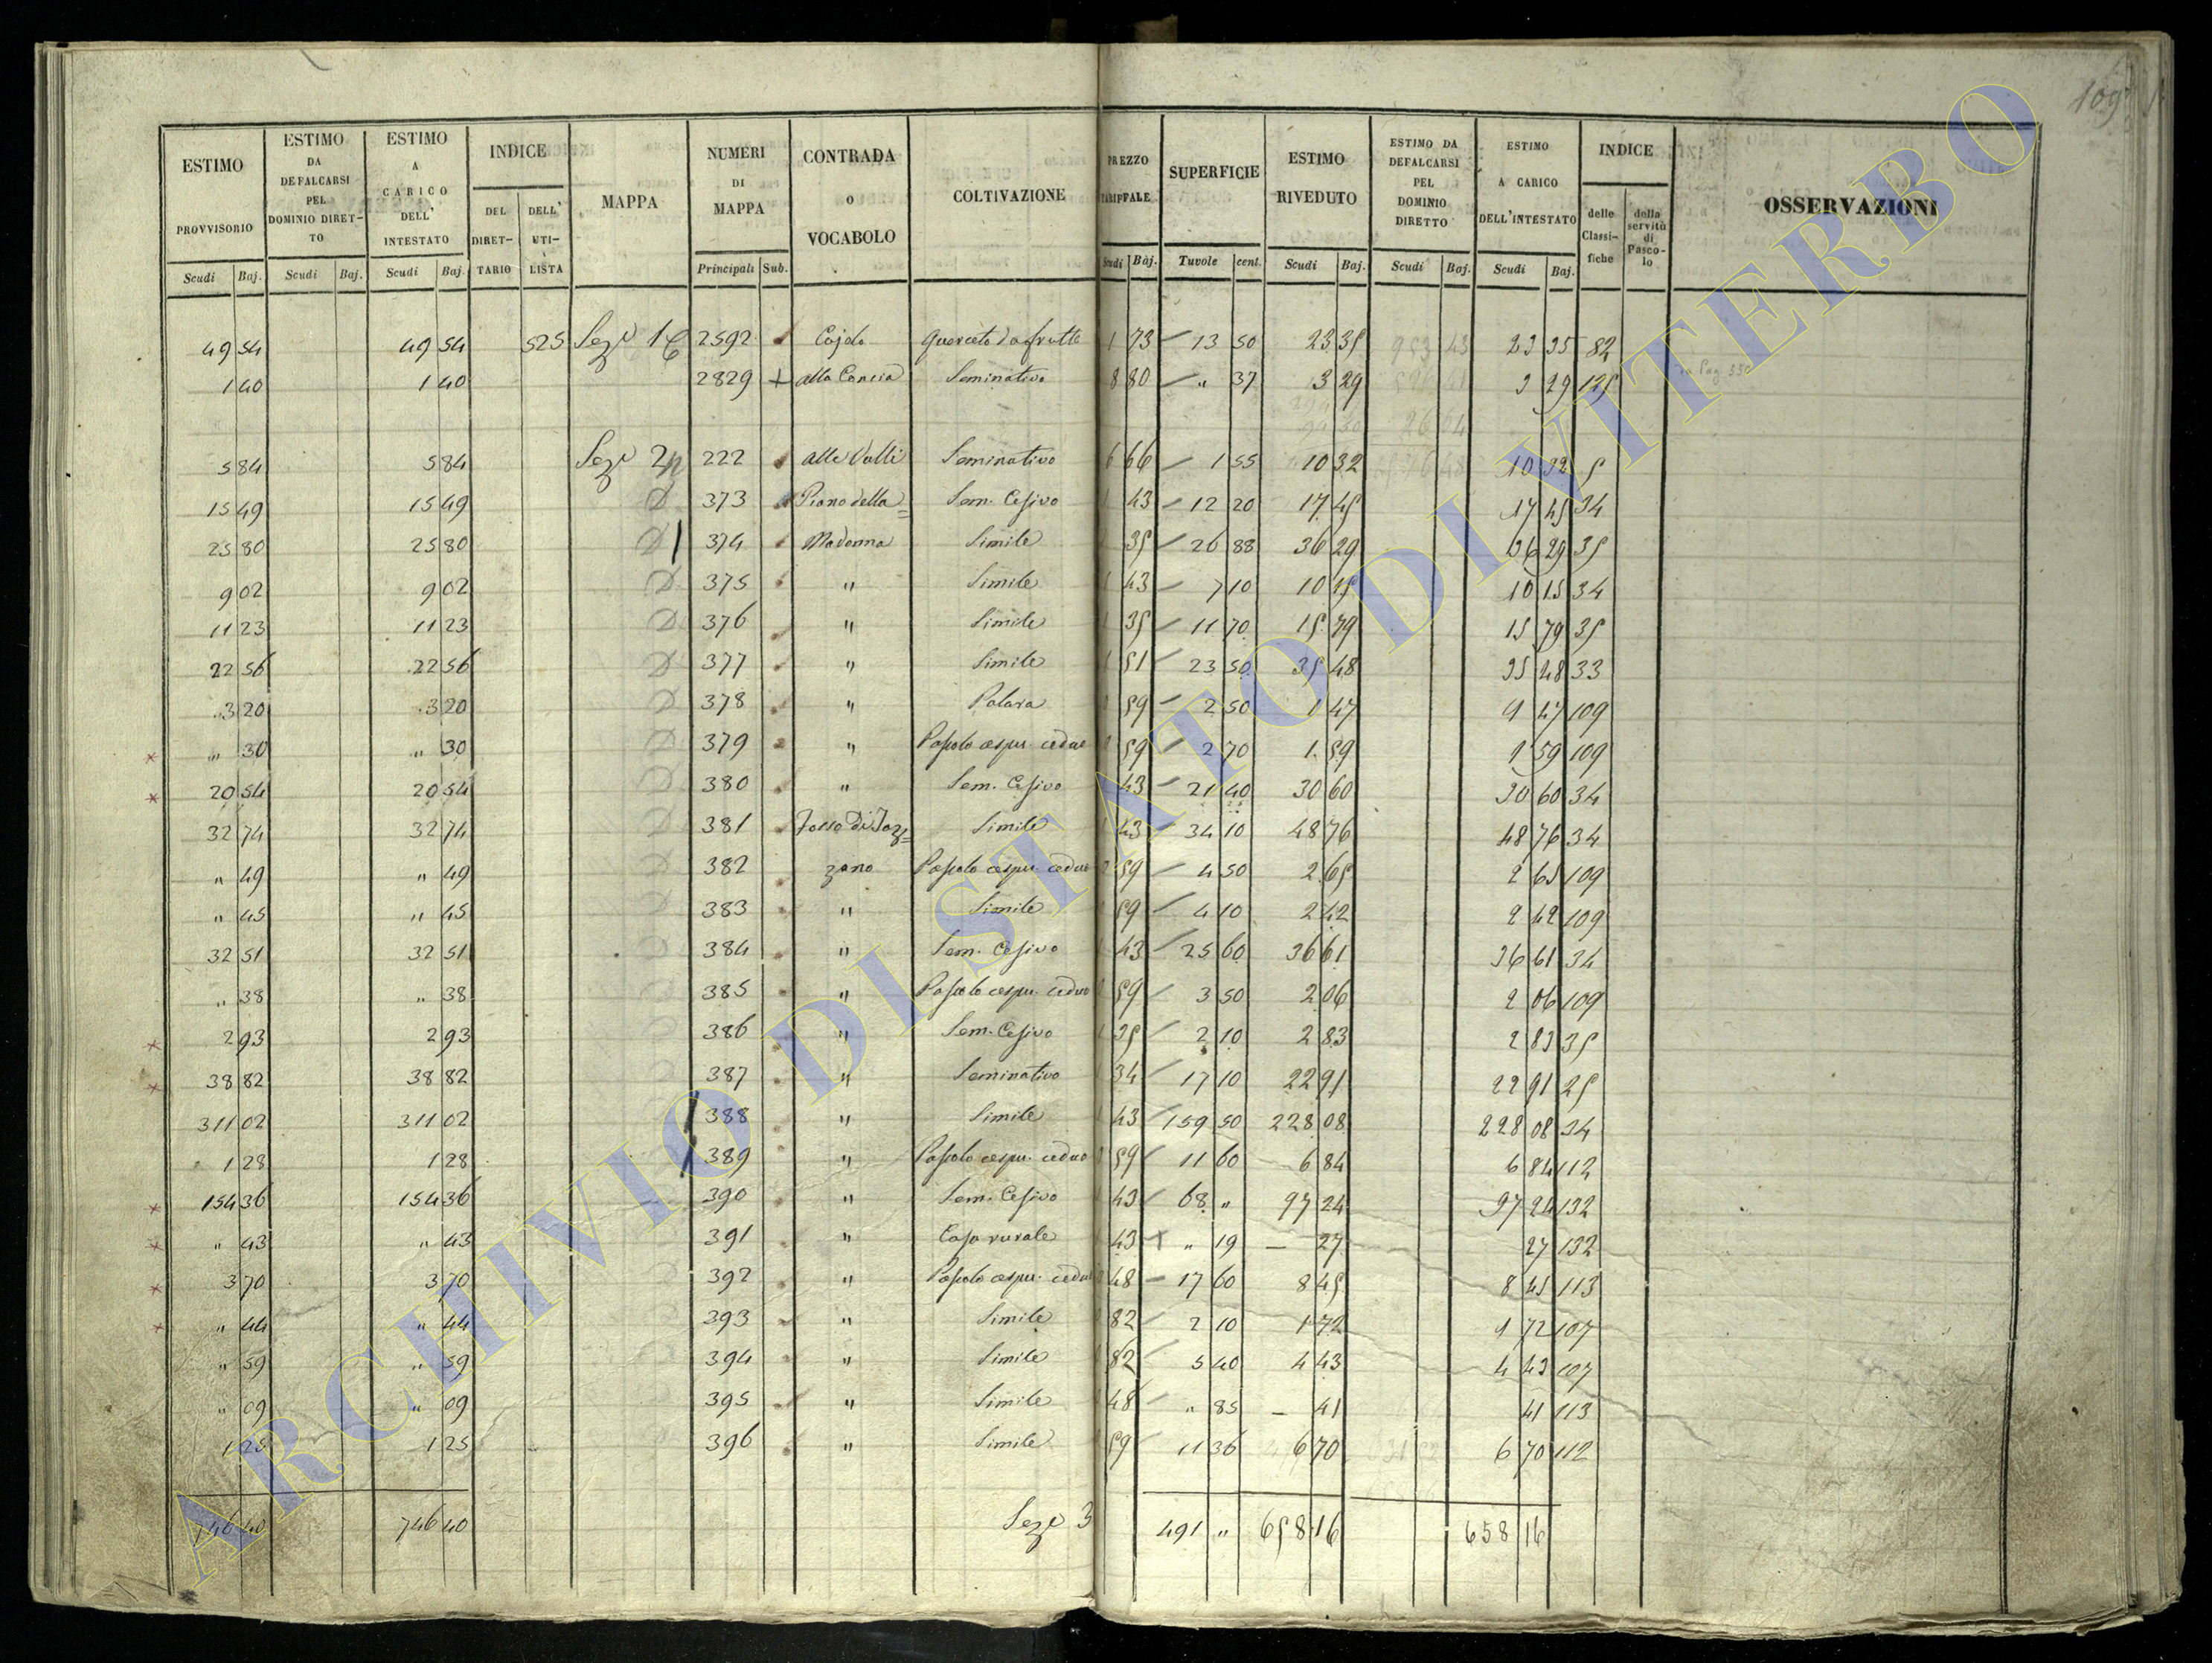 109
ESTIMO PROVVISORIO Scudi Baj. ESTIMO DA DEFALCARSI PEL DOMINIO DIRETTO Scudi Baj. ESTIMO A CARICO DELL' INTESTATO Scudi Baj. INDICE DEL DIRETTARIO DELL' UTILISTA MAPPA NUMERI DI MAPPA Principali Sub. CONTRADA O VOCABOLO COLTIVAZIONE PREZZO TARIFFALE Scudi Baj. SUPERFICIE Tavole cent. ESTIMO RIVEDUTO Scudi Baj. ESTIMO DA DEFALCARSI PEL DOMINIO DIRETTO Scudi Baj. ESTIMO A CARICO DELL'INTESTATO Scudi Baj. INDICE delle Classifiche della servitù di Pascolo OSSERVAZIONI
49 54 49 54 525 Sez.e 1 2592 Querceto da frutto 1 73 13 50 23 35 23 35 82
1 40 1 40 2829 + alla Concia Seminativo 8 80 " 37 3 29 3 29 125
5 84 5 84 Sez.e 2 222 alle Valli Seminativo 6 66 1 55 10 32 10 32 5
15 49 15 49 373 Piano della= Sem. Cesivo 1 43 12 20 17 45 17 45 34
25 80 25 80 374 Madonna Simile 35 26 88 36 29 36 29 35
9 02 9 02 375 " Simile 1 43 7 10 10 15 10 15 34
11 23 11 23 376 " Simile 1 35 11 70 15 79 15 79 35
22 56 22 56 377 " Simile 1 51 23 50 35 48 35 48 33
3 20 3 20 378 " 59 2 50 1 47 1 47 109
" 30 " 30 379 " Pascolo cespu. ceduo 59 2 70 1 59 1 59 109
20 54 20 54 380 " Sem. Cesivo 43 21 40 30 60 30 60 34
32 74 32 74 381 Fosso di Joz= Simile 1 43 34 10 48 76 48 76 34
" 49 " 49 382 zano Pascolo cespu. ceduo 59 4 50 2 65 2 65 109
" 45 " 45 383 " Simile 59 4 10 2 42 2 42 109
32 51 32 51 384 " Sem. Cesivo 1 43 25 60 36 61 36 61 34
" 38 " 38 385 " Pascolo cespu. ceduo 59 3 50 2 06 2 06 109
2 93 2 93 386 " Sem. Cesivo 1 35 2 10 2 83 2 83 35
38 82 38 82 387 " Seminativo 34 17 10 22 91 22 91 25
311 02 311 02 388 " Simile 1 43 159 50 228 08 228 08 34
1 28 1 28 389 " Pascolo cespu. ceduo 59 11 60 6 84 6 84 112
154 36 154 36 390 " Sem. Cesivo 43 68 " 97 24 97 24 132
" 43 " 43 391 " Casa rurale 43 " 19 — 27 27 132
3 70 3 70 392 " Pascolo cespu. ceduo 48 17 60 8 45 8 45 113
" 44 " 44 393 " Simile 82 2 10 1 72 1 72 107
" 59 " 59 394 " Simile 82 5 40 4 43 4 43 107
" 09 " 09 395 " Simile 48 " 85 — 41 41 113
1 25 1 25 396 " Simile 59 11 36 6 70 6 70 112
746 40 746 40 Sez.e 3 491 " 658 16 658 16
ARCHIVIO DI STATO DI VITERBO